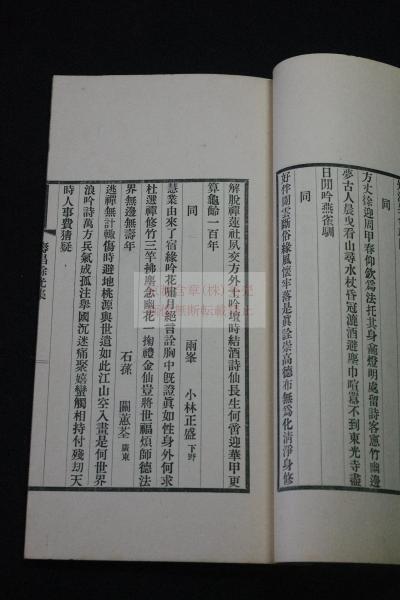 同
方丈徐迎周甲春仰欽爲法托其身龕燈明處留詩客蕙竹幽邊
夢古人晨曳看山尋水杖昏冠漉酒避塵巾喧囂不到東光寺盡
日閒吟燕雀馴
同
好伴閒雲斷俗緣風懷牢落是眞詮崇高德布無爲化清淨身修
解脫禪蓮社夙交方外士吟壇時結酒詩仙長生何啻迎華甲更
算龜齡一百年
同 雨峯 小林正盛 下野
慧業由來了宿緣吟花嘯月絕言詮胸中既證眞如性身外何求
杜選禪修竹三竿拂塵念幽花一掬禮金仙豈將世福煩師德法
界無邊無壽年
石蓀 關蕙荃 廣東
逃禪無計輒傷時避地桃源與世遺如此江山空入畫是何世界
浪吟詩萬方兵氣成孤注舉國沉迷痛聚嬉蠻觸相持付殘刧天
時人事費猜疑